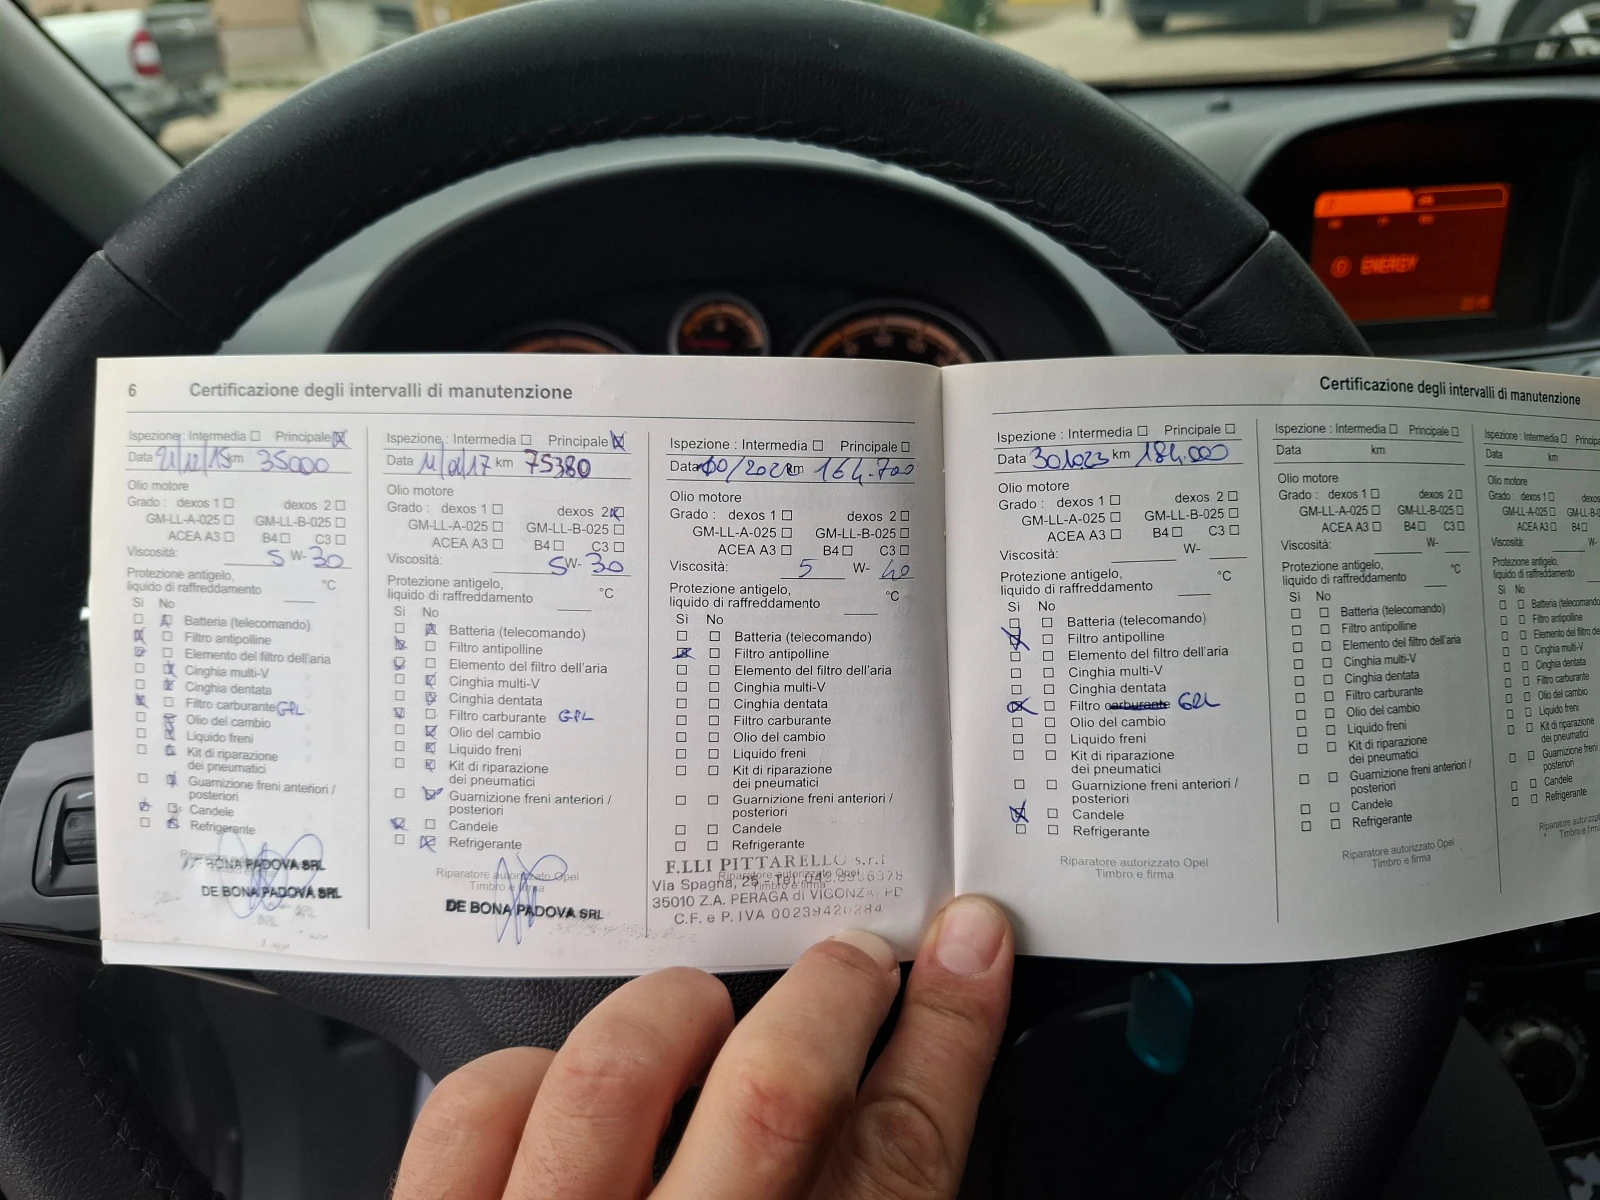 6 Certificazione degli intervalli di manutenzione
Ispezione: Intermedia Principale
Data 21/12/15 km 35000
Olio motore
Grado: dexos 1 dexos 2
GM-LL-A-025 GM-LL-B-025
ACEA A3 B4 C3
Viscosità: 5 W- 30
Protezione antigelo,
liquido di raffreddamento °C
Sì No
Batteria (telecomando)
Filtro antipolline
Elemento del filtro dell'aria
Cinghia multi-V
Cinghia dentata
Filtro carburante GPL
Olio del cambio
Liquido freni
Kit di riparazione
dei pneumatici
Guarnizione freni anteriori /
posteriori
Candele
Refrigerante
BONA PADOVA SRL
DE BONA PADOVA SRL
Ispezione : Intermedia Principale
Data km 75380
Olio motore
Grado : dexos 1 dexos 2
GM-LL-A-025 GM-LL-B-025
ACEA A3 B4 C3
Viscosità: 5 W- 30
Protezione antigelo,
liquido di raffreddamento °C
Sì No
Batteria (telecomando)
Filtro antipolline
Elemento del filtro dell'aria
Cinghia multi-V
Cinghia dentata
Filtro carburante GPL
Olio del cambio
Liquido freni
Kit di riparazione
dei pneumatici
Guarnizione freni anteriori /
posteriori
Candele
Refrigerante
Riparatore autorizzato Opel
Timbro e firma
DE BONA PADOVA SRL
Ispezione : Intermedia Principale
Data km 164.700
Olio motore
Grado : dexos 1 dexos 2
GM-LL-A-025 GM-LL-B-025
ACEA A3 B4 C3
Viscosità: 5 W- 40
Protezione antigelo,
liquido di raffreddamento °C
Sì No
Batteria (telecomando)
Filtro antipolline
Elemento del filtro dell'aria
Cinghia multi-V
Cinghia dentata
Filtro carburante
Olio del cambio
Liquido freni
Kit di riparazione
dei pneumatici
Guarnizione freni anteriori /
posteriori
Candele
Refrigerante
F.LLI PITTARELLO s.r.l
Riparatore autorizzato Opel
Via Spagna, 26 - Tel.
Timbro e firma
35010 Z.A. PERAGA di VIGONZA PD
C.F. e P. IVA
Certificazione degli intervalli di manutenzione
Ispezione : Intermedia Principale
Data 301023 km 184.000
Olio motore
Grado : dexos 1 dexos 2
GM-LL-A-025 GM-LL-B-025
ACEA A3 B4 C3
Viscosità: W-
Protezione antigelo,
liquido di raffreddamento °C
Sì No
Batteria (telecomando)
Filtro antipolline
Elemento del filtro dell'aria
Cinghia multi-V
Cinghia dentata
Filtro carburante GPL
Olio del cambio
Liquido freni
Kit di riparazione
dei pneumatici
Guarnizione freni anteriori /
posteriori
Candele
Refrigerante
Riparatore autorizzato Opel
Timbro e firma
Ispezione : Intermedia Principale
Data km
Olio motore
Grado : dexos 1 dexos 2
GM-LL-A-025 GM-LL-B-025
ACEA A3 B4 C3
Viscosità: W-
Protezione antigelo,
liquido di raffreddamento °C
Sì No
Batteria (telecomando)
Filtro antipolline
Elemento del filtro dell'aria
Cinghia multi-V
Cinghia dentata
Filtro carburante
Olio del cambio
Liquido freni
Kit di riparazione
dei pneumatici
Guarnizione freni anteriori /
posteriori
Candele
Refrigerante
Riparatore autorizzato Opel
Timbro e firma
Ispezione : Intermedia
Data km
Olio motore
Grado : dexos 1
GM-LL-A-025
ACEA A3 B4
Viscosità: W-
Protezione antigelo,
liquido di raffreddamento
Sì No
Batteria (telecomando)
Filtro antipolline
Cinghia multi-V
Cinghia dentata
Filtro carburante
Olio del cambio
Liquido freni
Kit di riparazione
dei pneumatici
Guarnizione freni
posteriori
Candele
Refrigerante
Timbro e firma
ENERGY